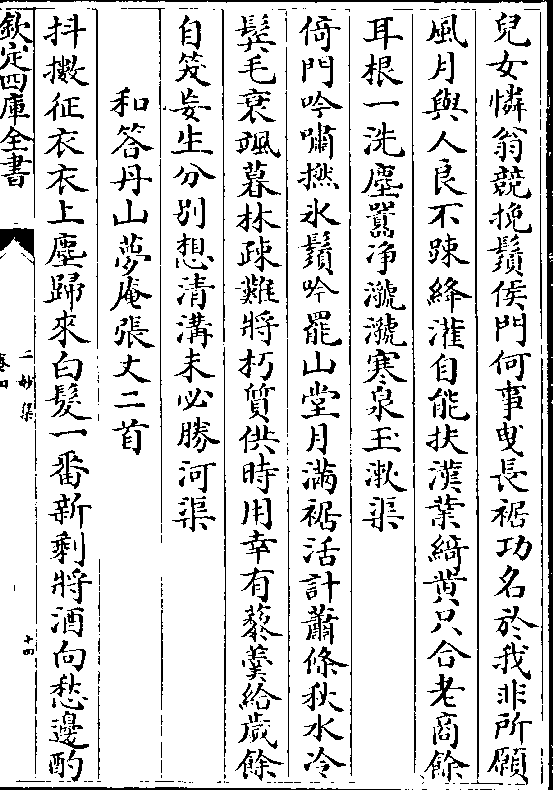 兒女憐翁競挽鬚侯門何事曵長裾功名於我非所願
風月與人良不踈絳灌自能扶漢業綺黄只合老商餘
耳根一洗塵囂净㶁㶁寒泉玉漱渠
倚門吟嘯撚氷鬚吟罷山堂月滿裾活計蕭條秋水冷
鬂毛衰颯暮林疎難將朽質供時用幸有藜羮給歲餘
自笑妄生分别想清溝未必勝河渠
和答丹山夢庵張丈二首
抖擻征衣衣上塵歸來白髮一番新剩將酒向愁邊酌
欽定四庫全書
二妙集
卷四
十四